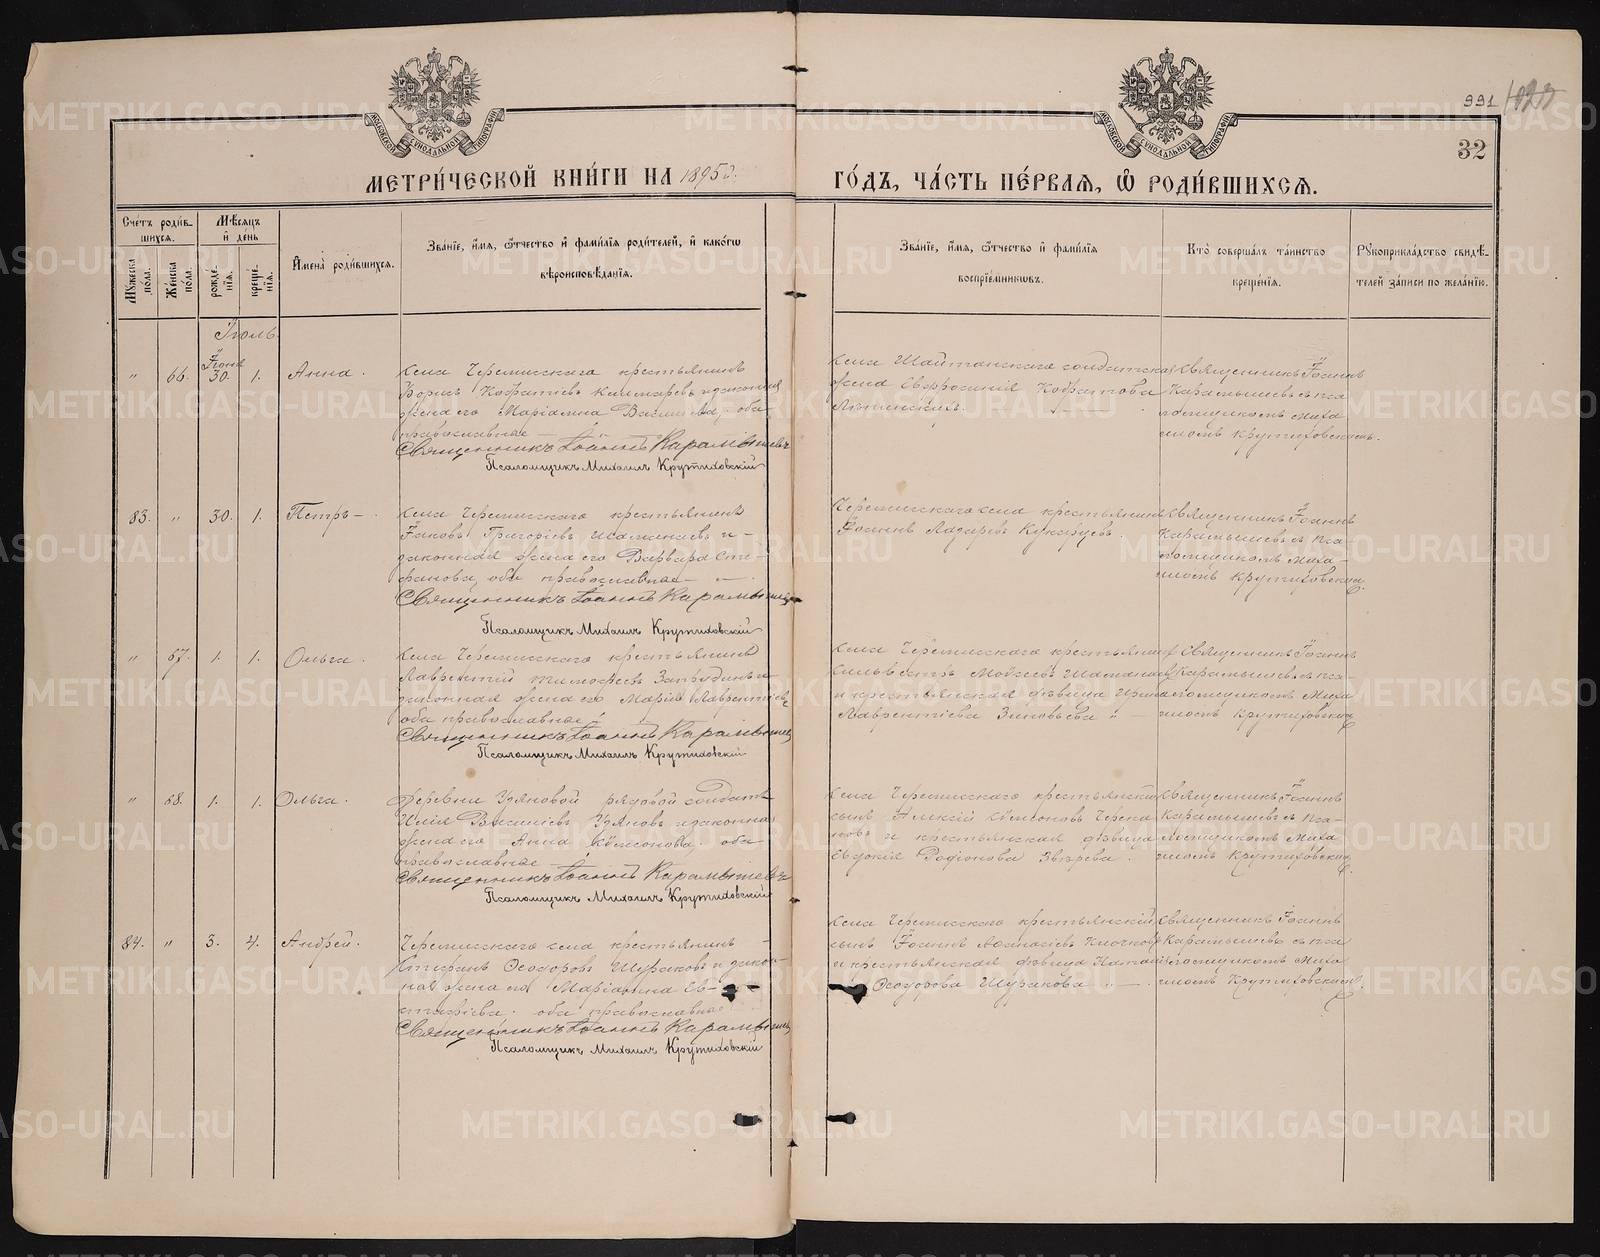 991
32
МОСКОВСКОЙ СѴНОДАЛЬНОЙ ТИПОГРАФІИ
МОСКОВСКОЙ СѴНОДАЛЬНОЙ ТИПОГРАФІИ
МЕТРИ́ЧЕСКОЙ КНИ́ГИ НА 1895 г.
ГО́ДЪ, ЧА́СТЬ ПЕ́РВАѦ, Ѽ РОДИ́ВШИХСѦ.
Сче́тъ роди́в-
шихсѧ.
Му́жеска по́ла.
Же́нска по́ла.
Мѣ́сѧцъ
и҆ де́нь
рожде́-
нїѧ.
креще́-
нїѧ.
И҆мена̀ роди́вшихсѧ.
Зва́нїе, и҆́мѧ, ѻ҆́тчество и҆ фами́лїѧ роди́телей, и҆ како́гѡ
вѣроисповѣ́данїѧ.
Зва́нїе, и҆́мѧ, ѻ҆́тчество и҆ фами́лїѧ
воспрїе́мникѡвъ.
Кто̀ соверша́лъ та́инство
креще́нїѧ.
Рꙋкоприкла́дство свидѣ́-
телей за́писи по жела́нїю.
Іюль
Іюня
" 66. 30. 1. Анна.
Села Черемисскаго крестьянинъ
Борисъ и законная
жена его Маріамна оба
православные
Священникъ Іоаннъ Карамышевъ
Псаломщикъ Михаилъ Крутиховскій
Села Шайтанскаго солдатская
жена Евфросинія
Священникъ Іоаннъ
Карамышевъ съ пса
ломщикомъ Миха
иломъ Крутиховскимъ.
83. " 30. 1. Петръ
Села Черемисскаго крестьянинъ
Іаковъ Григоріевъ и
законная жена его Варвара Сте-
фанова, оба православные
Священникъ Іоаннъ Карамышевъ
Псаломщикъ Михаилъ Крутиховскій
Черемисскаго села крестьянинъ
Іоаннъ Лазаревъ
Священникъ Іоаннъ
Карамышевъ съ пса-
ломщикомъ Миха-
иломъ Крутиховским.
" 67. 1. 1. Ольга.
Села Черемисскаго крестьянинъ
Лаврентій Тимофеевъ и
законная жена его Марія Лаврентіева
оба православные
Священникъ Іоаннъ Карамышевъ
Псаломщикъ Михаилъ Крутиховскій
Села Черемисскаго крестьянинъ
Сильвестръ Моисеевъ
и крестьянская дѣвица
Лаврентіева Зиновьева
Священникъ Іоаннъ
Карамышевъ съ пса
ломщикомъ Миха
иломъ Крутиховским
" 68. 1. 1. Ольга.
Деревни Узяновой рядовой солдатъ
Илія Василіевъ Узяновъ и законная
жена его Анна оба
православные
Священникъ Іоаннъ Карамышевъ
Псаломщикъ Михаилъ Крутиховскій
Села Черемисскаго крестьянскій
сынъ Алексій
и крестьянская дѣвица
Евдокія Родіонова Звѣрева.
Священникъ Іоаннъ
Карамышевъ съ пса-
ломщикомъ Миха
иломъ Крутиховским.
84. " 3. 4. Андрей.
Черемисскаго села крестьянинъ
Стефанъ Ѳеодоровъ и закон-
ная жена его Маріамна Ев-
оба православные
Священникъ Іоаннъ Карамышевъ
Псаломщикъ Михаилъ Крутиховскій
Села Черемисскаго крестьянскій
сынъ Іоаннъ Аѳанасіевъ Клочковъ
и крестьянская дѣвица
Ѳеодорова
Священникъ Іоаннъ
Карамышевъ съ пса
ломщикомъ Миха
иломъ Крутиховским.